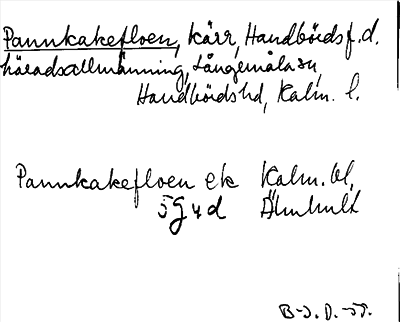 Pannkakefloen, kärr, Handbörds f.d.
häradsallmänning, Långemåla sn,
Handbörds hd, Kalm. l.
Pannkakefloen ek Kalm. bl.
5G4d Älmhult
B-J. D. -59.